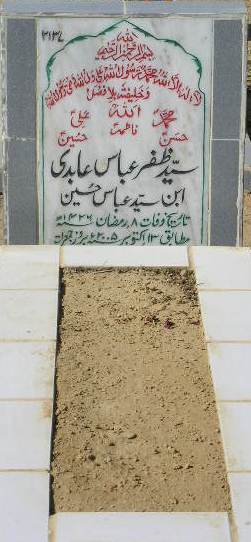 ۲۱۳۷
بسم الله الرحمن الرحيم
لا اله الا الله محمد رسول الله علی ولی الله وصی رسول الله
وخلیفته بلا فصل
محمد الله علی
حسن فاطمه حسین
سید ظفر عباس عابدی
ابن سید عباس حسین
تاریخ وفات ۸ رمضان ۱۴۲۶ھ
مطابق ۱۳ اکتوبر ۲۰۰۵ء بروز جمعرات